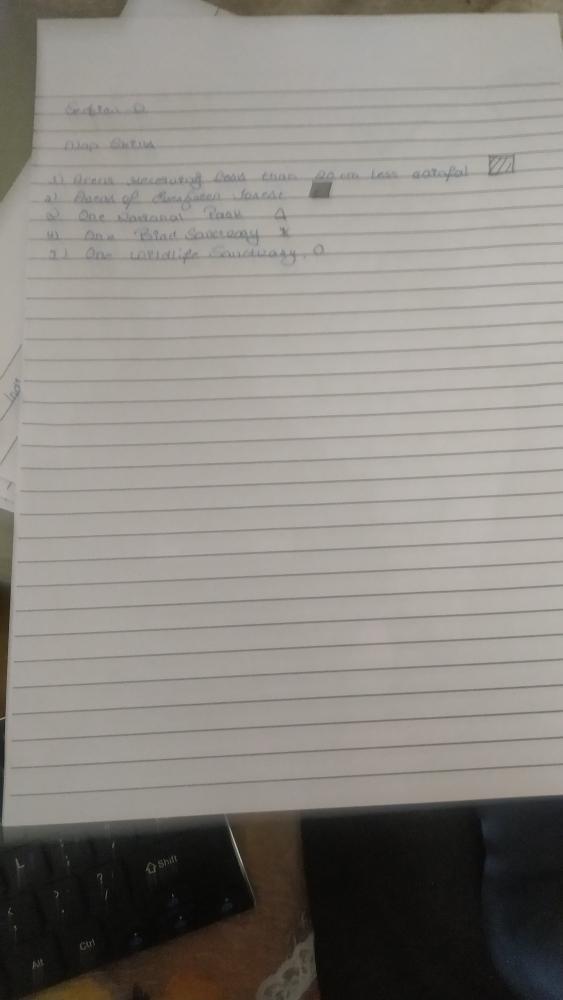 Section D
Map Skills
1) Areas receiving less than 20 cm less rainfal
2) Areas of Evergreen forest
3) One National Park
4) One Bird Sanctuary
5) One wildlife Sanctuary.
L
? /
Shift
Alt
Ctrl